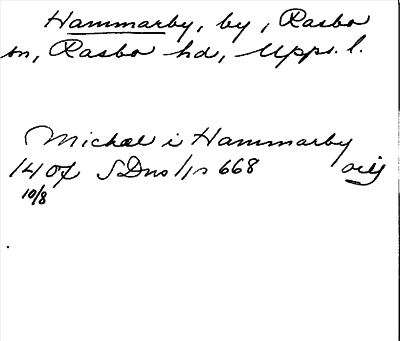 Hammarby, by, Rasbo
sn, Rasbo hd, Upps. l.
Michæl i Hammarby
1407 SDns 1/1 s 668 orig
10/8